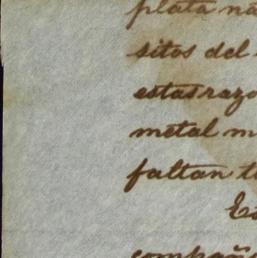 plata na
sitos del
estas razo
metal m
faltan t
Es
compañ